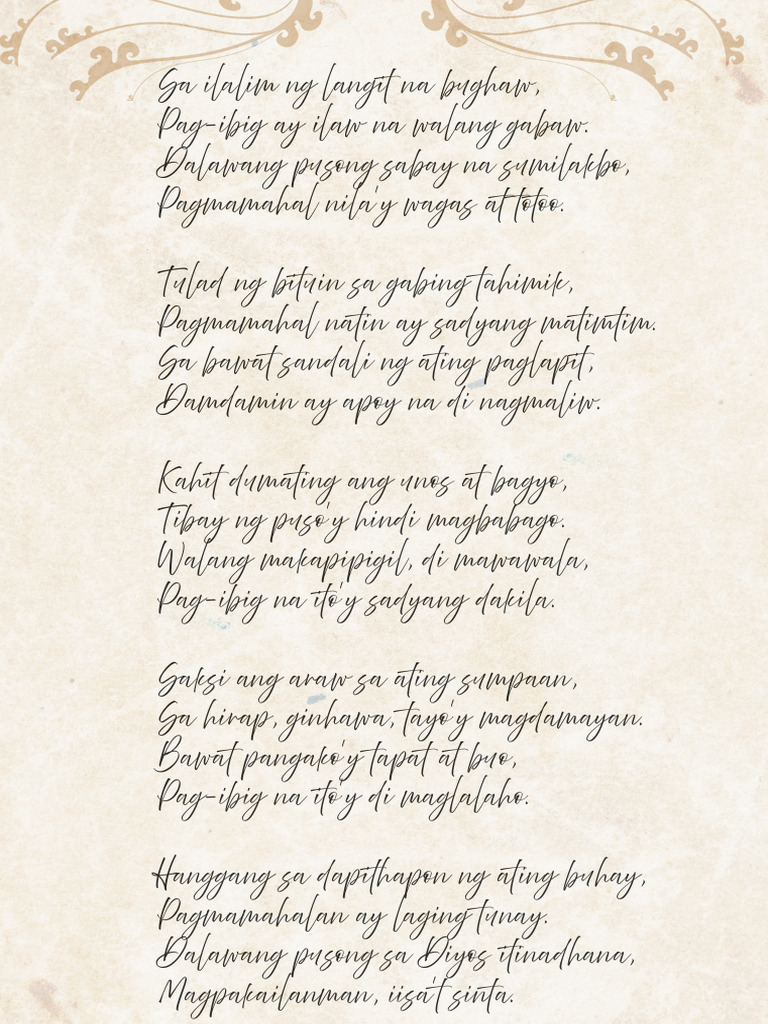 Sa ilalim ng langit na bughaw,
Pag-ibig ay ilaw na walang gabaw.
Dalawang pusong sabay na sumilakbo,
Pagmamahal nila'y wagas at totoo.
Tulad ng bituin sa gabing tahimik,
Pagmamahal natin ay sadyang matimtim.
Sa bawat sandali ng ating paglapit,
Damdamin ay apoy na di nagmaliw.
Kahit dumating ang unos at bagyo,
Tibay ng puso'y hindi magbabago.
Walang makapipigil, di mawawala,
Pag-ibig na ito'y sadyang dakila.
Saksi ang araw sa ating sumpaan,
Sa hirap, ginhawa, tayo'y magdamayan.
Bawat pangako'y tapat at buo,
Pag-ibig na ito'y di maglalaho.
Hanggang sa dapithapon ng ating buhay,
Pagmamahalan ay laging tunay.
Dalawang pusong sa Diyos itinadhana,
Magpakailanman, iisa't sinta.